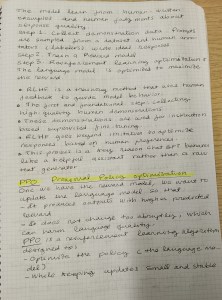 The model learn from human-written
examples and human judgments about
response quality.
Step 1: Collect demonstration data Prompts
are sampled from a dataset and human anno
tators (labelers) write ideal responses
Step 2: Train a Reward model
Step 3: Reinforcement learning optimization
The language model is optimized to maximize
the reward
• RLHF is a training method that uses human
feedback to guide model behavior.
• The first and foundational step: collecting
high-quality human demonstrations
• These demonstrations are used for instruction
based supervised fine-tuning
• RLHF goes beyond imitation to optimize
responses based on human preferences.
• This process is a key reason ChatGPT behaves
like a helpful assistant rather than a raw
text generator.
PPO: Proximal Policy optimization
Once we have the reward model, we want to
update the language model so that:
- It produces outputs with higher predicted
reward
- It does not change too abruptly, which
can harm language quality.
PPO is a reinforcement learning algorithm
designed to:
- Optimize the policy (the language mo
del)
- While keeping updates small and stable